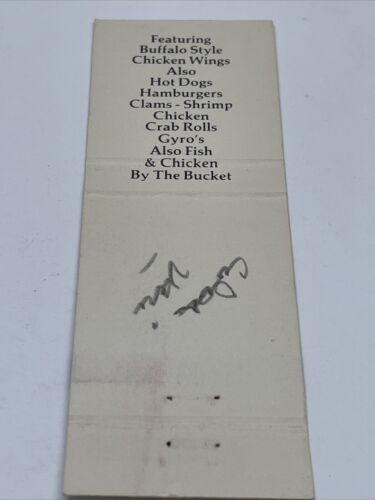 Featuring
Buffalo Style
Chicken Wings
Also
Hot Dogs
Hamburgers
Clams - Shrimp
Chicken
Crab Rolls
Gyro's
Also Fish
& Chicken
By The Bucket